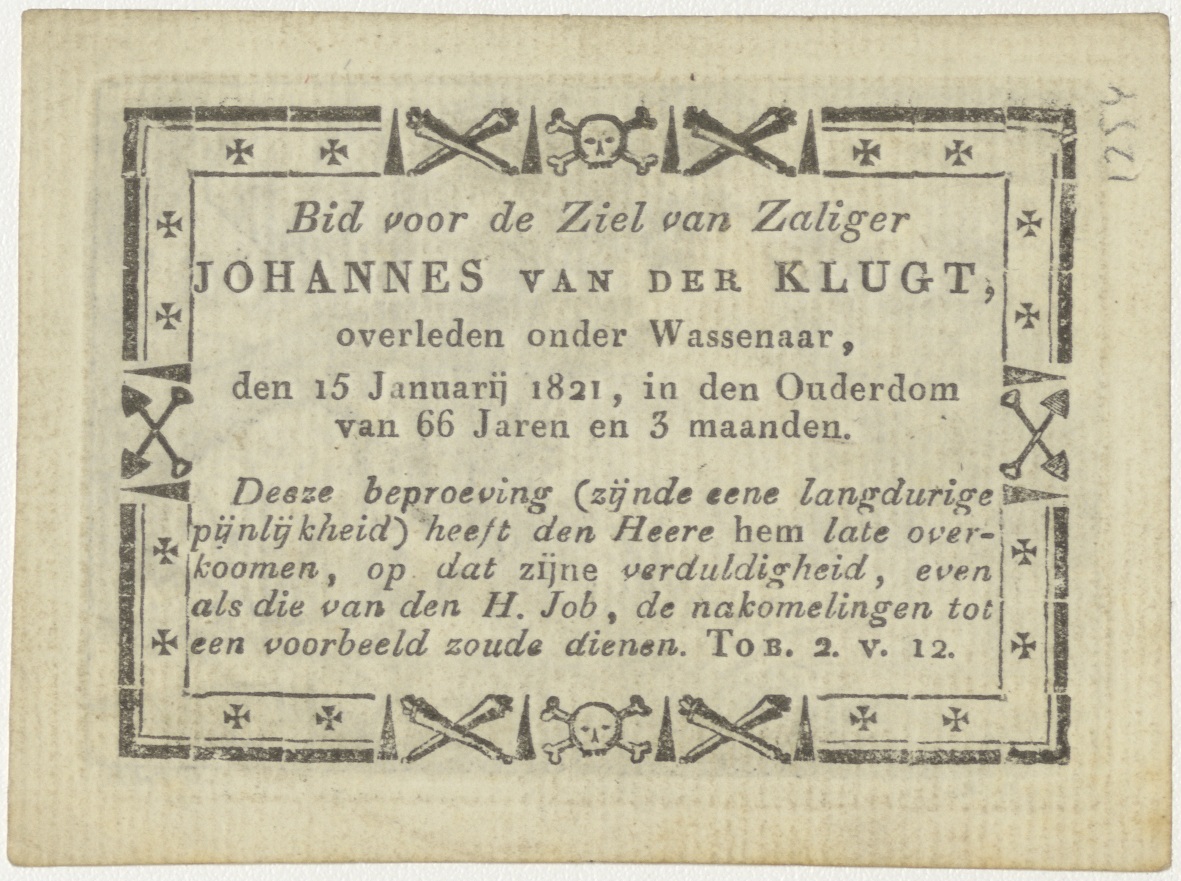 Bid voor de Ziel van Zaliger
JOHANNES VAN DER KLUGT,
overleden onder Wassenaar,
den 15 Januarij 1821, in den Ouderdom
van 66 Jaren en 3 maanden.
Deeze beproeving (zijnde eene langdurige
pijnlijkheid) heeft den Heere hem late over-
koomen, op dat zijne verduldigheid, even
als die van den H. Job, de nakomelingen tot
een voorbeeld zoude dienen. TOB. 2. v. 12.
1254